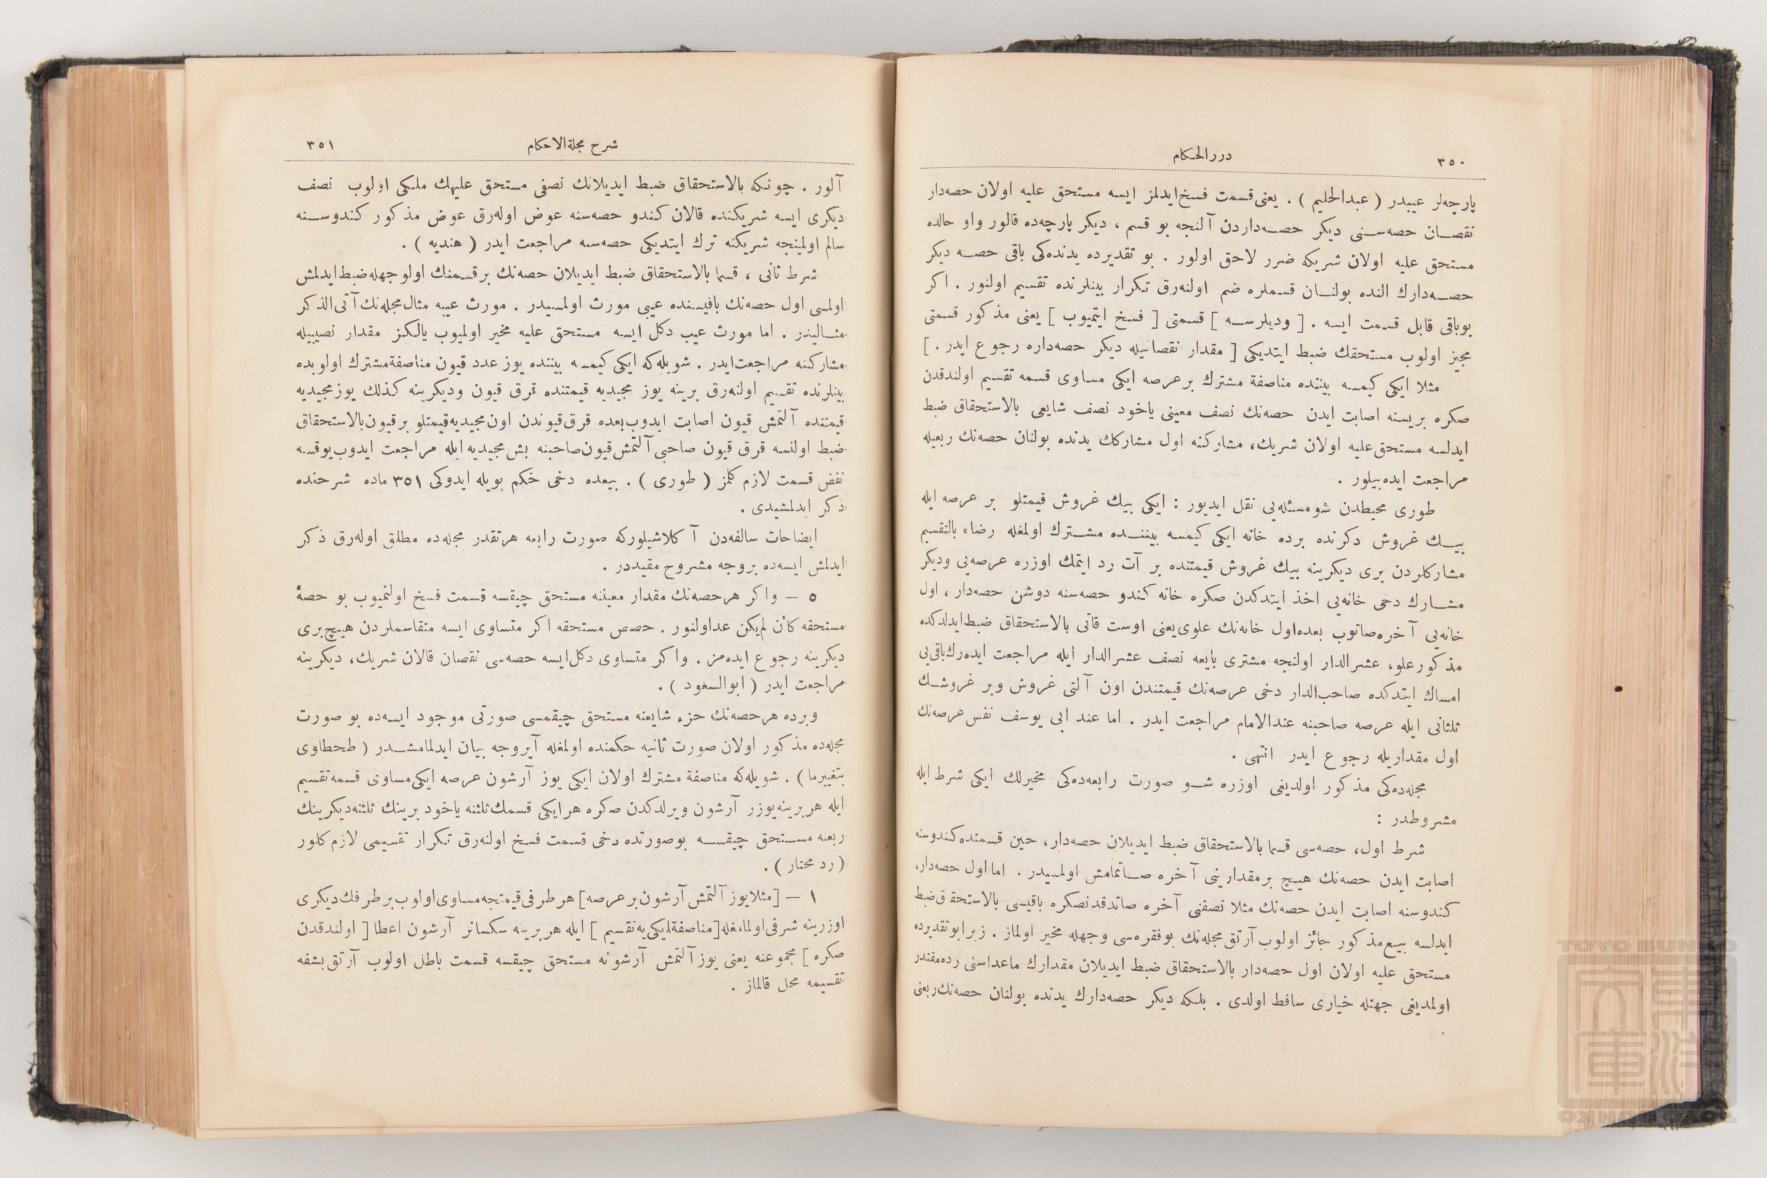 ٣٥٠
دررالحكام
پارچه‌لر عيبدر ( عبدالحليم ) . يعنى قسمت فسخ ايدلمز ايسه مستحق عليه اولان حصه‌دار
نقصان حصه‌سنى ديكر حصه‌داردن آلنجه بو قسم ، ديكر پارچه‌ده قالور واو حالده
مستحق عليه اولان شريكه ضرر لاحق اولور . بو تقديرده يدنده‌كى باقى حصه ديكر
حصه‌دارك النده بولنان قسملره ضم اولنه‌رق تكرار بينلرنده تقسيم اولنور . اكر
بوباقى قابل قسمت ايسه . [ وديلرسه ] قسمتى [ فسخ ايتميوب ] يعنى مذكور قسمتى
مجيز اولوب مستحقك ضبط ايتديكى [ مقدار نقصانيله ديكر حصه‌داره رجوع ايدر . ]
مثلا ايكى كيمسه بيننده مناصفة مشترك برعرصه ايكى مساوى قسمه تقسيم اولندقدن
صكره بريسنه اصابت ايدن حصه‌نك نصف معينى ياخود نصف شايعى بالاستحقاق ضبط
ايدلسه مستحق عليه اولان شريك، مشاركنه اول مشاركك يدنده بولنان حصه‌نك ربعيله
مراجعت ايده‌بيلور .
طورى محيطدن شو مسئله‌يى نقل ايديور : ايكى بيك غروش قيمتلو بر عرصه ايله
بيك غروش دكرنده برده خانه ايكى كيمسه بيننده مشترك اولمغله رضاء بالتقسيم
مشاركلردن برى ديكرينه بيك غروش قيمتنده بر آت رد ايتمك اوزره عرصه‌يى وديكر
مشارك دخى خانه‌يى اخذ ايتدكدن صكره خانه كندو حصه‌سنه دوشن حصه‌دار ، اول
خانه‌يى آخره صاتوب بعده اول خانه‌نك علوى يعنى اوست قاتى بالاستحقاق ضبط ايدلدكده
مذكور علو، عشر الدار اولنجه مشترى بايعه نصف عشرالدار ايله مراجعت ايده‌رك باقى‌يى
امساك ايتدكده صاحب الدار دخى عرصه‌نك قيمتندن اون آلتى غروش وبر غروشك
ثلثانى ايله عرصه صاحبنه عندالامام مراجعت ايدر . اما عند ابى يوسف نفس عرصه‌نك
اول مقداريله رجوع ايدر انتهى .
مجله‌ده‌كى مذكور اولديغى اوزره شو صورت رابعه‌ده‌كى مخيرلك ايكى شرط ايله
مشروطدر :
شرط اول، حصه‌سى قسما بالاستحقاق ضبط ايديلان حصه‌دار، حين قسمتده كندوسنه
اصابت ايدن حصه‌نك هيچ بر مقدارينى آخره صاتمامش اولمسيدر . اما اول حصه‌دار،
كندوسنه اصابت ايدن حصه‌نك مثلا نصفنى آخره صاتدقدنصكره باقيسى بالاستحقاق ضبط
ايدلسه بيع مذكور جائز اولوب آرتق مجله‌نك بوفقره‌سى وجهله مخير اولماز . زيرا بو تقديرده
مستحق عليه اولان اول حصه‌دار بالاستحقاق ضبط ايديلان مقدارك ماعداسنى رده مقتدر
اولمديغى جهتله خيارى ساقط اولدى . بلكه ديكر حصه‌دارك يدنده بولنان حصه‌نك ربعنى
شرح مجلة الاحكام
٣٥١
آلور . چونكه بالاستحقاق ضبط ايديلانك نصفى مستحق عليهك ملكى اولوب نصف
ديكرى ايسه شريكنده قالان كندو حصه‌سنه عوض اوله‌رق عوض مذكور كندوسنه
سالم اولمينجه شريكنه ترك ايتديكى حصه‌سنه مراجعت ايدر ( هنديه ) .
شرط ثانى ، قسما بالاستحقاق ضبط ايديلان حصه‌نك برقسمنك اولوجهله ضبط ايدلمش
اولمسى اول حصه‌نك باقيسنده عيبى مورث اولمسيدر . مورث عيبه مثال مجله‌نك آتى الذكر
مثاليدر . اما مورث عيب دكل ايسه مستحق عليه مخير اولميوب يالكز مقدار نصيبيله
مشاركنه مراجعت ايدر . شويله‌كه ايكى كيمسه بيننده يوز عدد قيون مناصفة مشترك اولوبده
بينلرنده تقسيم اولنه‌رق برينه يوز مجيديه قيمتنده قرق قيون وديكرينه كذلك يوز مجيديه
قيمتنده آلتمش قيون اصابت ايدوب بعده قرق قيوندن اون مجيديه قيمتلو بر قيون بالاستحقاق
ضبط اولنسه قرق قيون صاحبى آلتمش قيون صاحبنه بش مجيديه ايله مراجعت ايدوب يوقسه
نقض قسمت لازم كلمز ( طورى ) . بيعده دخى حكم بويله ايدوكى ٣٥١ ماده شرحنده
ذكر ايدلمشيدى .
ايضاحات سالفه‌دن آكلاشيلوركه صورت رابعه هرنقدر مجله‌ده مطلق اوله‌رق ذكر
ايدلمش ايسه‌ده بروجه مشروح مقيددر .
٥ – واكر هرحصه‌نك مقدار معيننه مستحق چيقسه قسمت فسخ اولنميوب بو حصۀ
مستحقه كأن لم‌يكن عد اولنور . حصص مستحقه اكر متساوى ايسه متقاسملردن هيچ برى
ديكرينه رجوع ايده‌مز . واكر متساوى دكل ايسه حصه‌سى نقصان قالان شريك، ديكرينه
مراجعت ايدر ( ابوالسعود ) .
وبرده هرحصه‌نك جزء شايعنه مستحق چيقمسى صورتى موجود ايسه‌ده بو صورت
مجله‌ده مذكور اولان صورت ثانيه حكمنده اولمغله آيروجه بيان ايدلمامشدر ( طحطاوى
بتغييرما ) . شويله‌كه مناصفة مشترك اولان ايكى يوز آرشون عرصه ايكى مساوى قسمه تقسيم
ايله هربرينه يوزر آرشون ويرلدكدن صكره هر ايكى قسمك ثلثنه ياخود برينك ثلثنه ديكرينك
ربعنه مستحق چيقسه بوصورتده دخى قسمت فسخ اولنه‌رق تكرار تقسيمى لازم كلور
( رد محتار ) .
١ – [ مثلا يوز آلتمش آرشون بر عرصه ] هر طرفى قيمتجه مساوى اولوب بر طرفك ديكرى
اوزرينه شرفى اولمامغله [ مناصفة ايكى‌يه تقسيم ] ايله هر برينه سكسانر آرشون اعطا [ اولندقدن
صكره ] مجموعنه يعنى يوز آلتمش آرشونه مستحق چيقسه قسمت باطل اولوب آرتق بشقه
تقسيمه محل قالماز .
TOYO BUNKO
東洋文庫
TOYO BUNKO